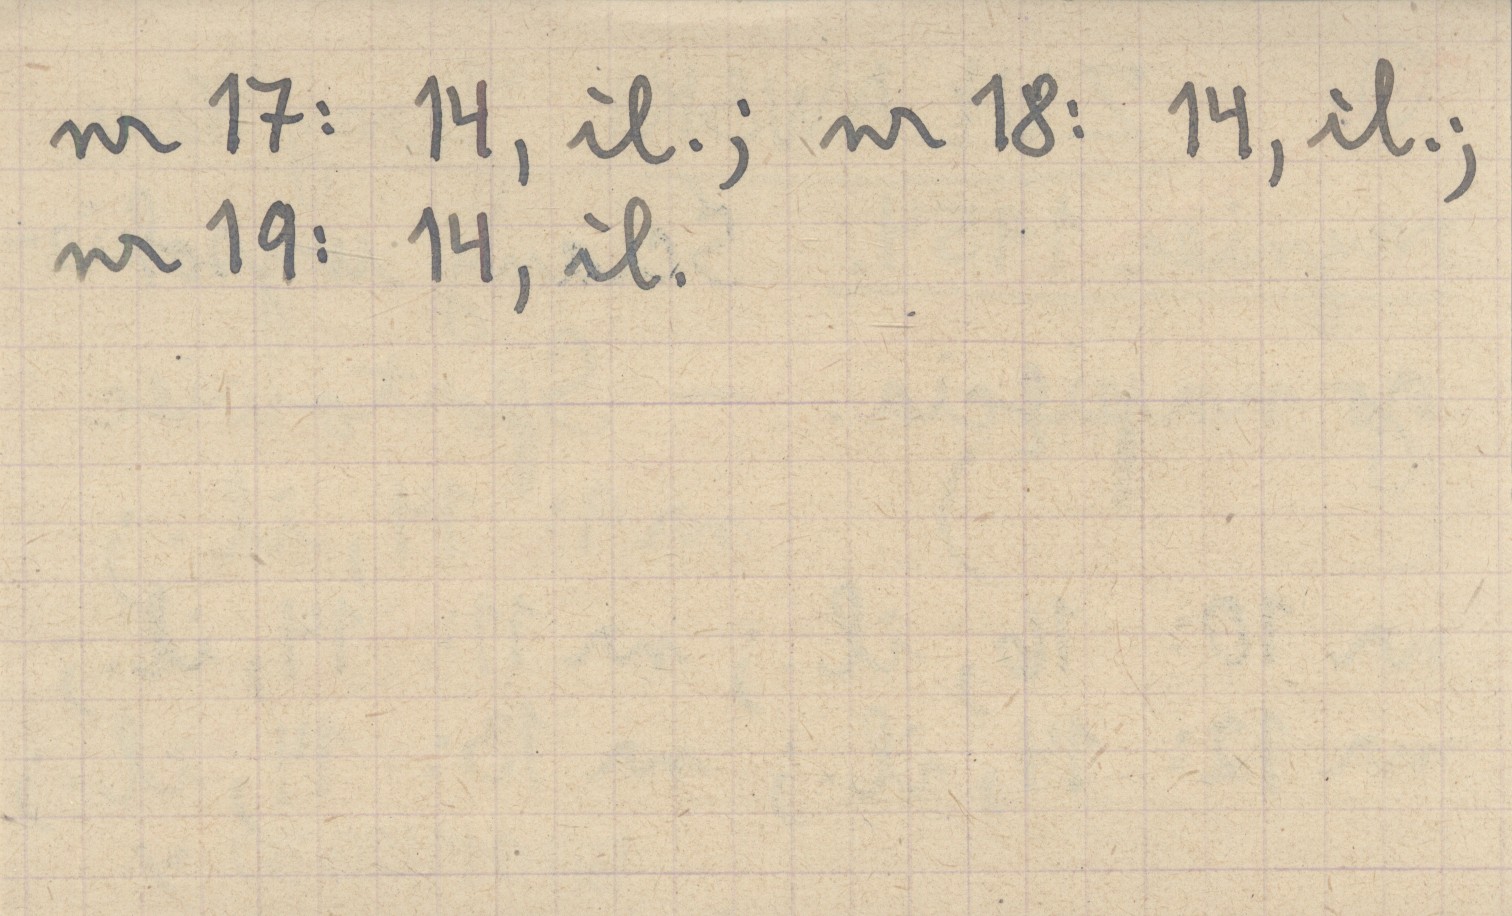 nr 17: 14, il.; nr 18: 14, il.;
nr 19: 14, il.